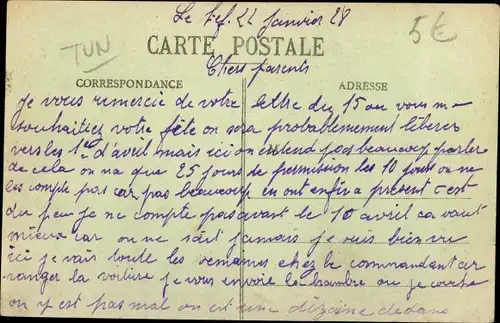 Le Kef. 22 Janvier 28
5€
TUN
CARTE POSTALE
Chers parents
CORRESPONDANCE
ADRESSE
Je vous remercie de votre lettre du 15 ou vous me
souhaitiez votre fête on sera probablement liberer
vers les 1er d'avril mais ici on entend pas beaucoup parler
de cela on na que 25 jours de permission les 10 jours on ne
les compte pas car pas beaucoup en ont enfin a présent c'est
du peu je ne compte pas avant le 10 avril ca vaut
mieux car on ne sait jamais je suis bien vu
ici je vais toute les semaines chez le commandant ar
ranger la voiture je vous envoie la chambre ou je couche
on y est pas mal on est une dizaine dedans